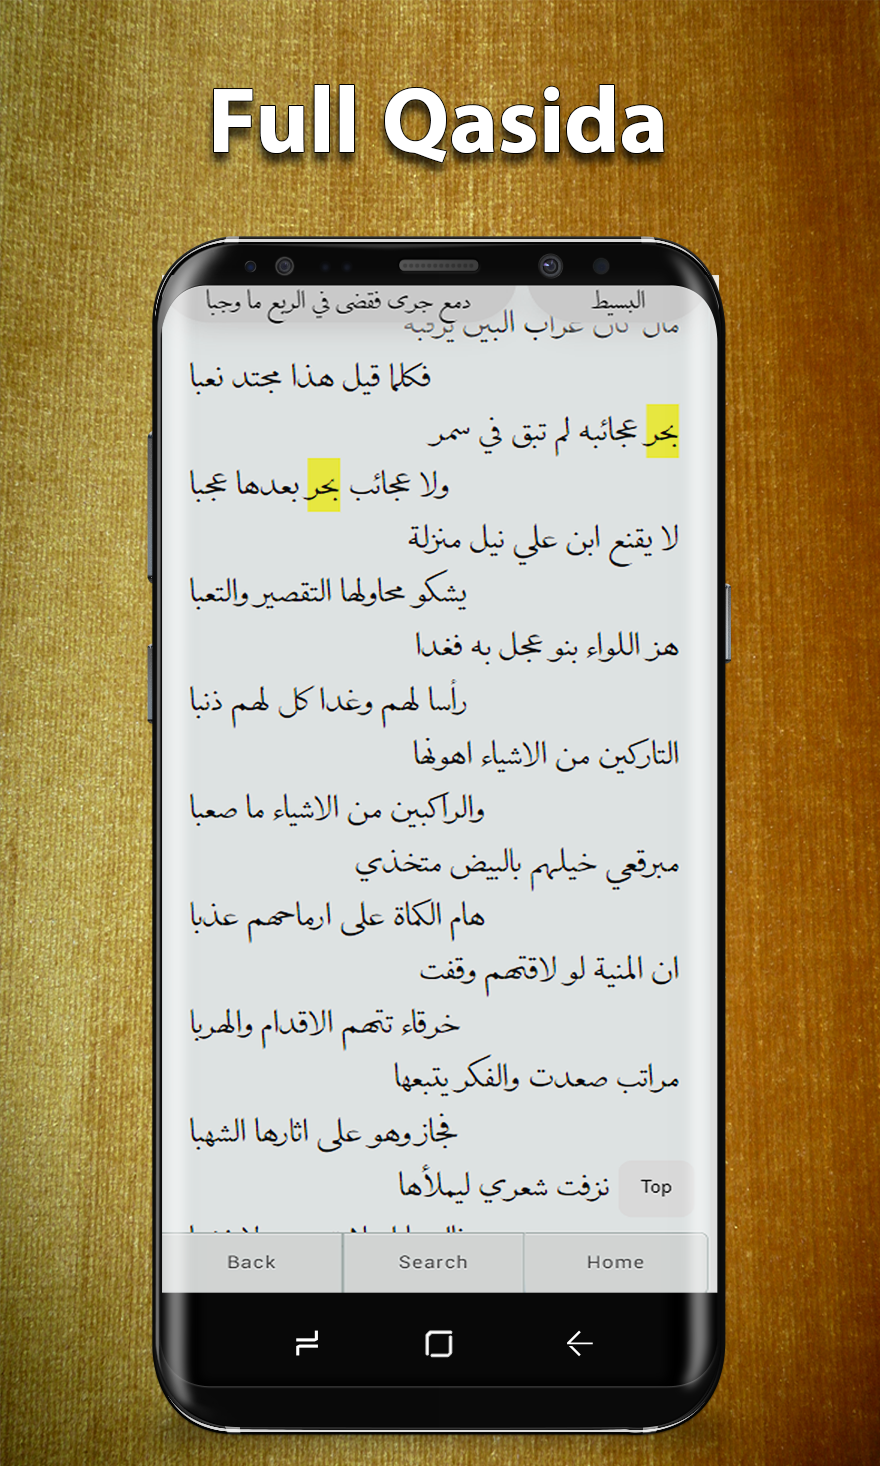 Full Qasida
البسيط
دمع جرى فقضى في الربع ما وجبا
مال كأن غراب البين يرقبه
فكلما قيل هذا مجتد نعبا
بحر عجائبه لم تبق في سمر
ولا عجائب بحر بعدها عجبا
لا يقنع ابن علي نيل منزلة
يشكو محاولها التقصير والتعبا
هز اللواء بنو عجل به فغدا
رأسا لهم وغدا كل لهم ذنبا
التاركين من الاشياء اهونها
والراكبين من الاشياء ما صعبا
مبرقعي خيلهم بالبيض متخذي
هام الكماة على ارماحهم عذبا
ان المنية لو لاقتهم وقفت
خرقاء تتهم الاقدام والهربا
مراتب صعدت والفكر يتبعها
فجاز وهو على اثارها الشهبا
نزفت شعري ليملأها
Top
Back
Search
Home